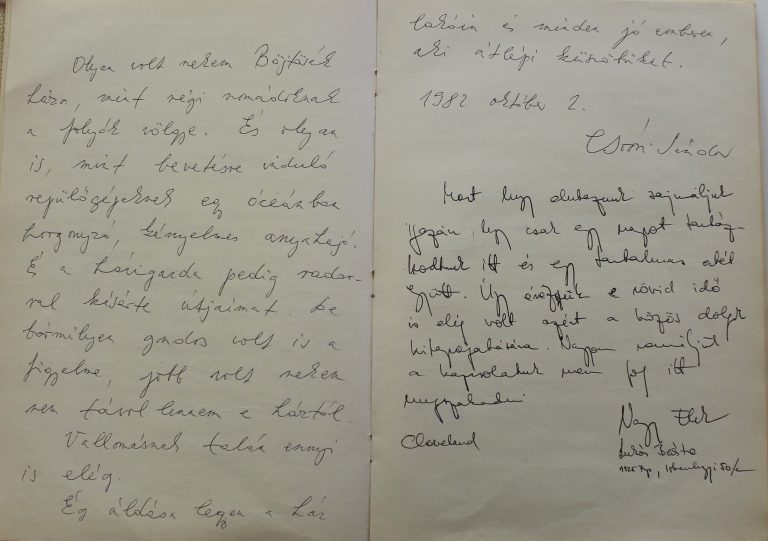 Olyan volt nekem Böjtösék
háza, mint régi nomádoknak
a folyók völgye. És olyan
is, mint bevetésre induló
repülőgépeknek egy óceánban
horgonyzó, kényelmes anyahajó.
És a házigazda pedig radar-
ral kísérte útjaimat. De
bármilyen gondos volt is a
figyelme, jobb volt nekem
nem távol lennem a háztól.
Vallomásnak talán ennyi
is elég.
Ég áldása legyen a ház
lakóin és minden jó emberen,
aki átlépi küszöbüket.
1982 október 2.
Csoóri Sándor
Most hogy elutazunk sajnáljuk
igazán, hogy csak egy napot tartóz-
kodtunk itt és egy tartalmas estét
együtt. Úgy érezzük e rövid idő
is elég volt azért a közös dolgok
kitapogatására. Nagyon reméljük
a kapcsolatunk nem fog itt
megszakadni
Cleveland
Nagy
Beáta
1125 Bp., Istenhegyi 50/